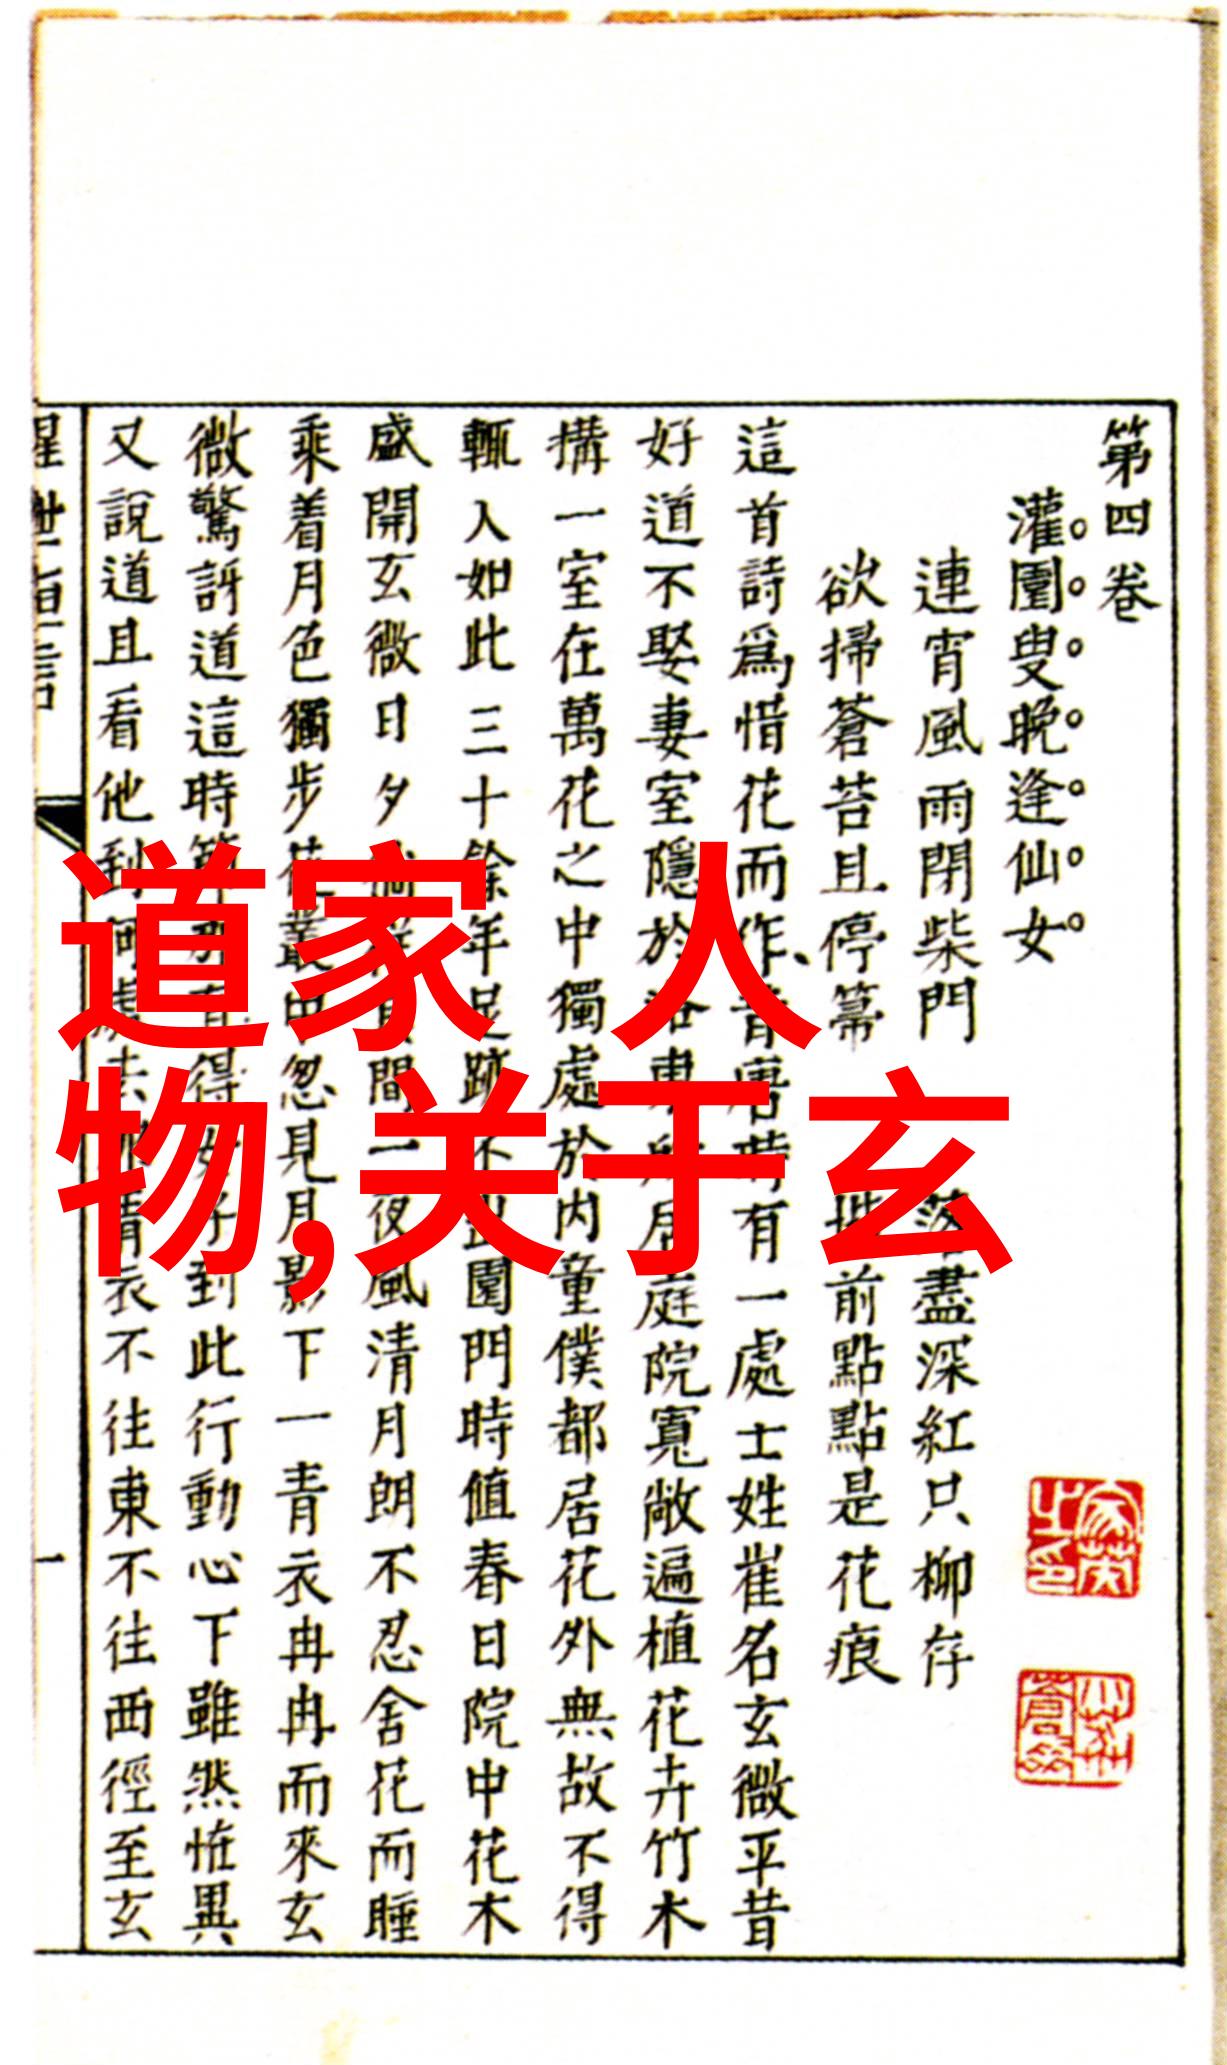 第四卷
灌園叟晚逢仙女
連宵風雨閉柴門 落盡深紅只柳存
欲掃蒼苔且停箒 堦前點點是花痕
這首詩爲惜花而作、昔唐時有一處士姓崔名玄微平昔
好道不娶妻室隱於洛東所居庭院寬敞遍植花卉竹木
搆一室在萬花之中獨處於内童僕都居花外無故不得
輒入如此三十餘年足跡不出園門時値春日院中花木
盛開玄微日夕 間一夜風清月朗不忍舍花而睡
乘着月色獨步花叢中忽見月影下一青衣冉冉而來玄
微驚訝道這時節那有得女子到此行動心下雖然恠異
又說道且看他到何處去那青衣不往東不往西徑至玄
一
道家 人
物,关于玄